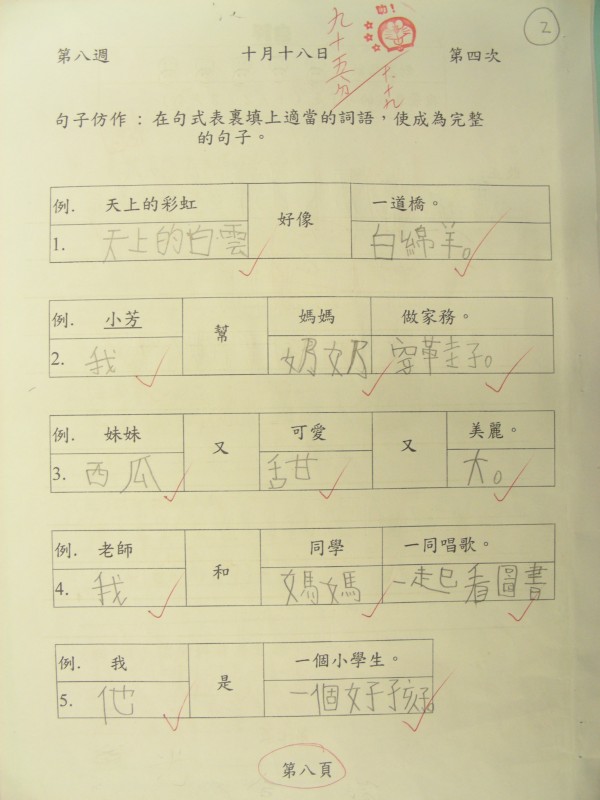 2
九十五分
十.十九
第八週 十月十八日 第四次
句子仿作：在句式表裏填上適當的詞語，使成為完整
的句子。
例. 天上的彩虹 好像 一道橋。
1. 天上的白雲 白綿羊。
例. 小芳 幫 媽媽 做家務。
2. 我 奶奶 穿鞋子。
例. 妹妹 又 可愛 又 美麗。
3. 西瓜 甜 大。
例. 老師 和 同學 一同唱歌。
4. 我 媽媽 一起看圖書
例. 我 是 一個小學生。
5. 他 一個好孩子。
第八頁